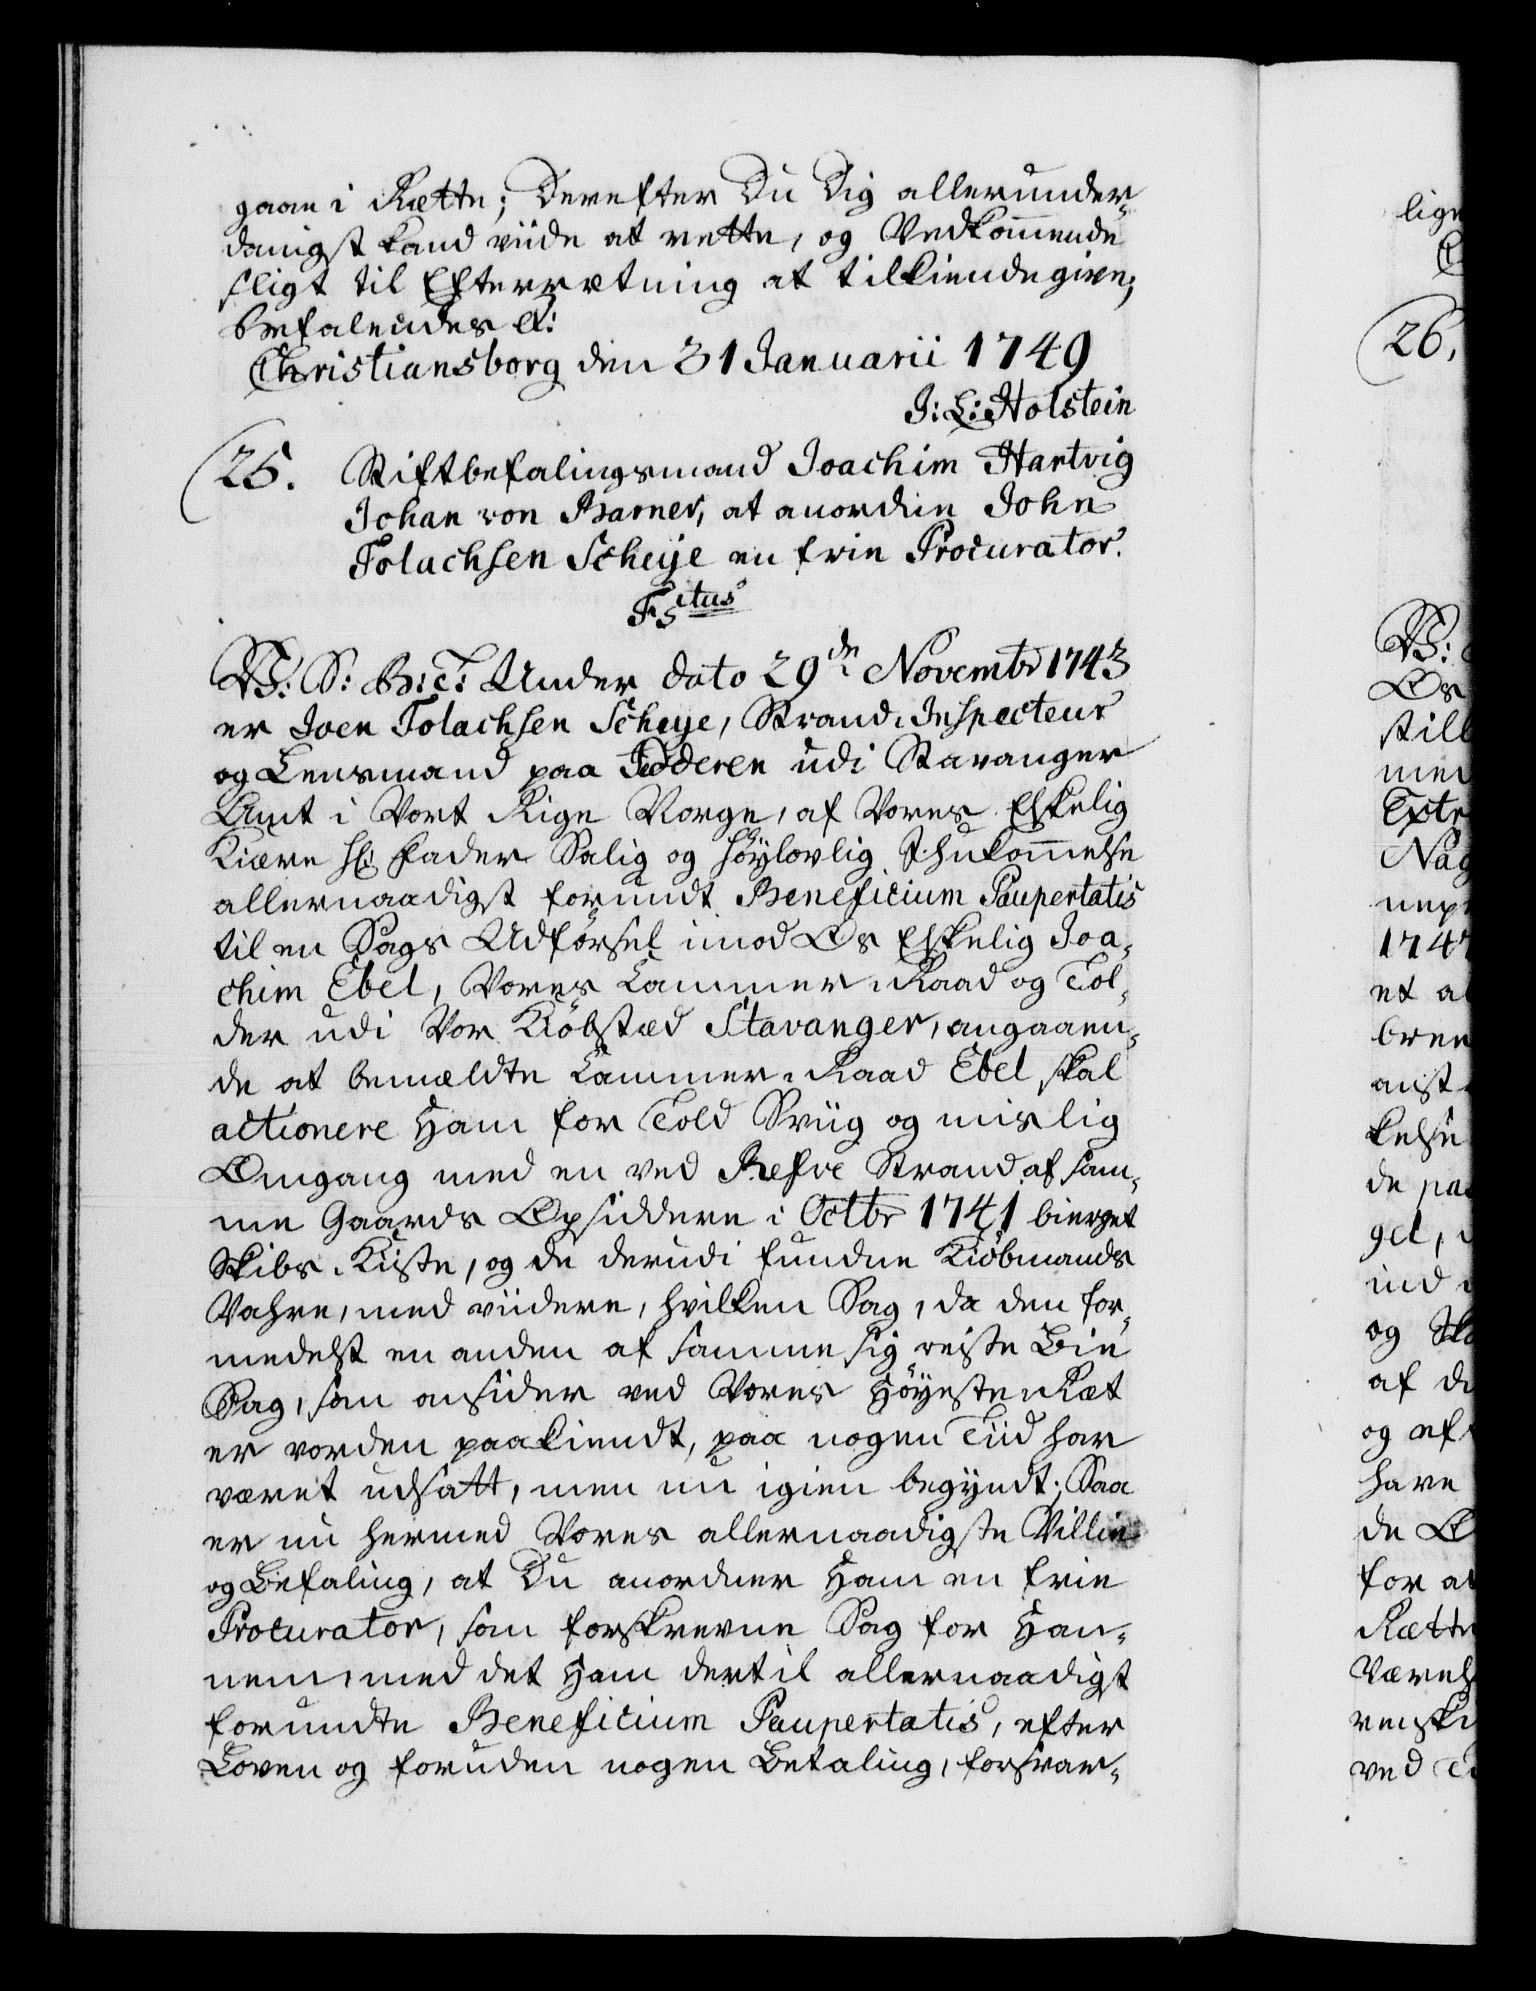 gaae i Rætte; Derefter Du Dig allerunder-
danigst kand viide at rette, og Vedkom̄ende
sligt til Efterretning at tilkiendegive;
befalendes etc:
Christiansborg den 31 Januarii 1749
J: L: Holstein
25. Stiftbefalingsmand Joachim Hartvig
Johan von Barner, at anordne John
Tolachsen Scheye en frie Procurator.
Fstus
V: S: G: T: Under dato 29de Novembr 1743
er Joen Tolachsen Scheye, Strand-Inspecteur
og Lensmand paa Jedderen udi Stavanger
Amt i Vort Rige Norge, af Vores Elskelig
Kiære Hr: Fader Salig og Høylovlig Ihukom̄else
allernaadigst forundt Beneficium Paupertatis
til en Sags Udførsel imod Os Elskelig Joa-
chim Ebel, Vores Cammer-Raad og Tol-
der udi Vor Kiøbstæd Stavanger, angaaen-
de at bemældte Cammer-Raad Ebel skal
actionere Ham for Told Sviig og mislig
Omgang med en ved Refve Strand af sam-
me Gaards Opsiddere i Octbr 1741 bierget
Skibs-Kiste, og de derudi fundne Kiøbmands
Vahre, med viidere, hvilken Sag, da den for-
medelst en anden af samme sig reiste Bie
Sag, som omsider ved Vores Høyeste Ræt
er vorden paakiendt, paa nogen Tiid har
været udsatt, men nu igien begyndt; Saa
er nu hermed Vores allernaadigste Villie
og Befaling, at Du anordner Ham en frie
Procurator, som forskrevne Sag for Ham-
nem med det Ham dertil allernaadigst
forundte Beneficium Paupertatis, efter
Loven og foruden nogen Betaling, forsvar-
lige
26.
V:
Os
still
med
Extr
Nag
nep
174
et al
bree
anst
kelse
de paa
gel,
ind
og Sk
af de
og ef
have
de O
for at
Rætte
Værels
ved